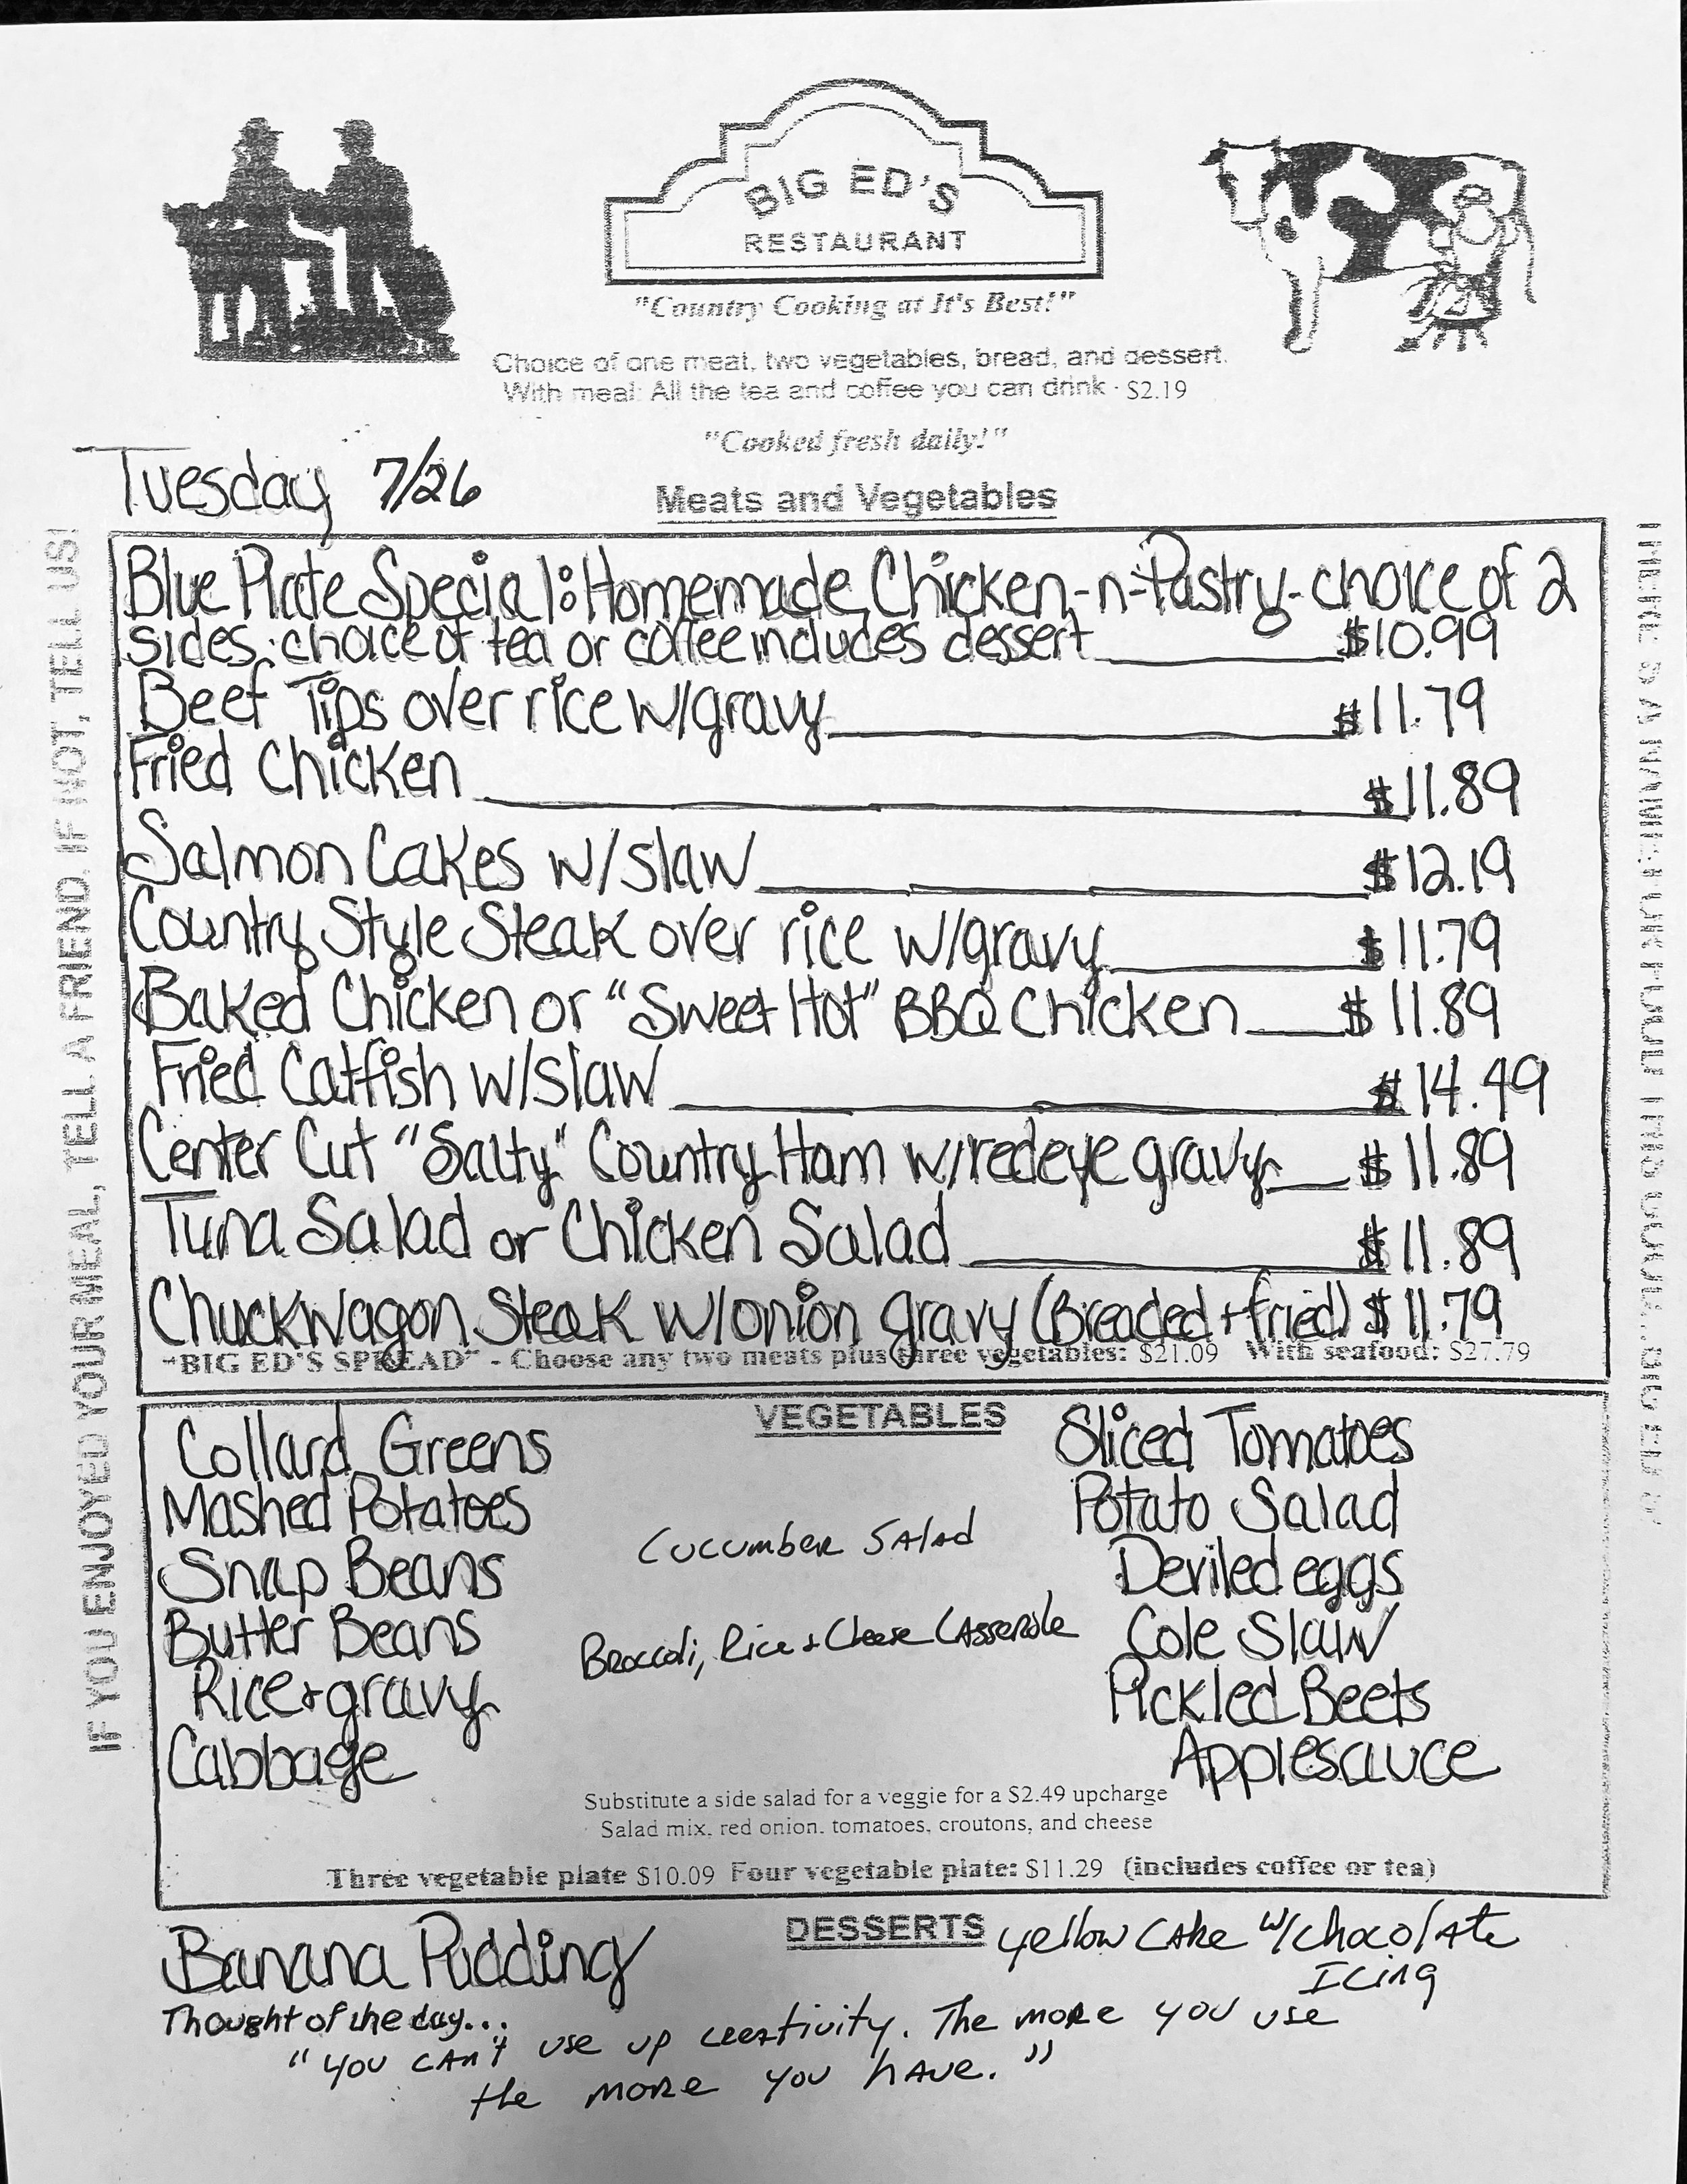 BIG ED'S
RESTAURANT
"Country Cooking at It's Best!"
Choice of one meat, two vegetables, bread, and dessert.
With meal: All the tea and coffee you can drink · $2.19
"Cooked fresh daily!"
Tuesday 7/26
Meats and Vegetables
Blue Plate Special: Homemade Chicken-n-Pastry - choice of 2
sides; choice of tea or coffee includes dessert $10.99
Beef Tips over rice w/gravy $11.79
Fried Chicken $11.89
Salmon Cakes w/slaw $12.19
Country Style Steak over rice w/gravy $11.79
Baked Chicken or "Sweet Hot" BBQ Chicken $11.89
Fried Catfish w/slaw $14.49
Center Cut "Salty" Country Ham w/redeye gravy $11.89
Tuna Salad or Chicken Salad $11.89
Chuckwagon Steak w/onion gravy (Breaded + fried) $11.79
"BIG ED'S SPREAD" - Choose any two meats plus three vegetables: $21.09 With seafood: $27.79
VEGETABLES
Collard Greens
Mashed Potatoes
Snap Beans
Butter Beans
Rice + gravy
Cabbage
Cucumber Salad
Broccoli, Rice + Cheese Casserole
Sliced Tomatoes
Potato Salad
Deviled eggs
Cole Slaw
Pickled Beets
Applesauce
Substitute a side salad for a veggie for a $2.49 upcharge
Salad mix, red onion, tomatoes, croutons, and cheese
Three vegetable plate $10.09 Four vegetable plate: $11.29 (includes coffee or tea)
DESSERTS
Banana Pudding
Yellow Cake w/chocolate
Icing
Thought of the day...
"You can't use up creativity. The more you use
the more you have."
IF YOU ENJOYED YOUR MEAL, TELL A FRIEND. IF NOT, TELL US!
THERE IS A